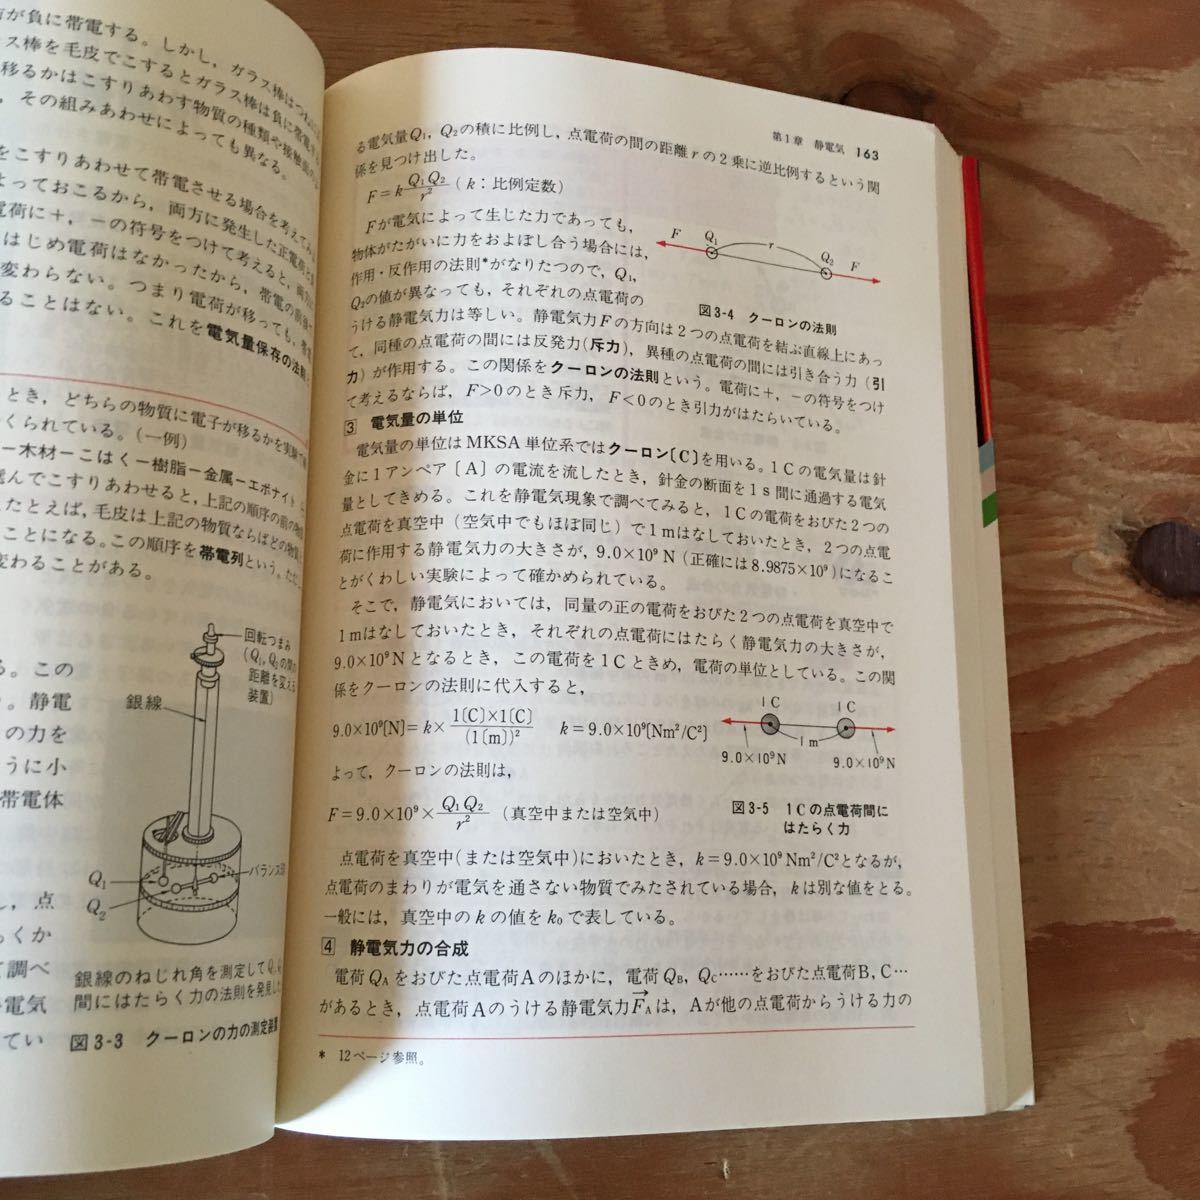 が負に帯電する。しかし，ガラス棒は
ス棒を毛皮でこするとガラス棒は負に帯電
移るかはこすりあわす物質の種類や接触面の
，その組みあわせによっても異なる。
をこすりあわせて帯電させる場合を考えてみ
よっておこるから，両方に発生した正電荷と
電荷に＋，－の符号をつけて考えると，両
はじめ電荷はなかったから，帯電の前後
変わらない。つまり電荷が移っても，
ることはない。これを電気量保存の法則
とき，どちらの物質に電子が移るかを実験で
くられている。（一例）
ー木材ーこはくー樹脂ー金属ーエボナイト
んでこすりあわせると，上記の順序の前の物質
たとえば，毛皮は上記の物質ならばどの物質
ことになる。この順序を帯電列という。ただ
変わることがある。
回転つまみ
（Q₁，Q₂の間の
距離を変える
装置）
銀線
る。この
。静電
の力を
うに小
帯電体
バランス
Q₁
Q₂
し，点
らくか
て調べ
電気
てい
銀線のねじれ角を測定してQ₁
間にはたらく力の法則を発見し
図3-3 クーロンの力の測定装置
第1章 静電気 163
る電気量Q₁，Q₂の積に比例し，点電荷の間の距離rの2乗に逆比例するという関
係を見つけ出した。
F＝k Q₁Q₂/r² （k：比例定数）
Fが電気によって生じた力であっても，
物体がたがいに力をおよぼし合う場合には，
作用・反作用の法則*がなりたつので，Q₁，
Q₂の値が異なっても，それぞれの点電荷の
F Q₁ r Q₂ F
図3-4 クーロンの法則
うける静電気力は等しい。静電気力Fの方向は2つの点電荷を結ぶ直線上にあっ
て，同種の点電荷の間には反発力(斥力)，異種の点電荷の間には引き合う力（引
力）が作用する。この関係をクーロンの法則という。電荷に＋，－の符号をつけ
て考えるならば，F＞0のとき斥力，F＜0のとき引力がはたらいている。
3 電気量の単位
電気量の単位はMKSA単位系ではクーロン〔C〕を用いる。1Cの電気量は針
金に1アンペア〔A〕の電流を流したとき，針金の断面を1s間に通過する電気
量としてきめる。これを静電気現象で調べてみると，1Cの電荷をおびた2つの
点電荷を真空中（空気中でもほぼ同じ）で1mはなしておいたとき，2つの点電
荷に作用する静電気力の大きさが，9.0×10⁹N（正確には8.9875×10⁹）になるこ
とがくわしい実験によって確かめられている。
そこで，静電気においては，同量の正の電荷をおびた2つの点電荷を真空中で
1mはなしておいたとき，それぞれの点電荷にはたらく静電気力の大きさが，
9.0×10⁹Nとなるとき，この電荷を1Cときめ，電荷の単位としている。この関
係をクーロンの法則に代入すると，
9.0×10⁹[N]＝k× 1〔C〕×1〔C〕/(1〔m〕)² k＝9.0×10⁹[Nm²/C²]
1C 1C
1m
9.0×10⁹N 9.0×10⁹N
よって，クーロンの法則は，
F＝9.0×10⁹× Q₁Q₂/r² （真空中または空気中）
図3-5 1Cの点電荷間に
はたらく力
点電荷を真空中(または空気中)においたとき，k＝9.0×10⁹Nm²/C²となるが，
点電荷のまわりが電気を通さない物質でみたされている場合，kは別な値をとる。
一般には，真空中のkの値をk₀で表している。
4 静電気力の合成
電荷Q_Aをおびた点電荷Aのほかに，電荷Q_B，Q_C……をおびた点電荷B，C…
があるとき，点電荷Aのうける静電気力F⃗_Aは，Aが他の点電荷からうける力の
* 12ページ参照。